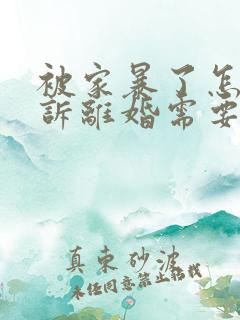 被家暴了怎
訴離婚需要
真束砂波
未经同意禁止转载